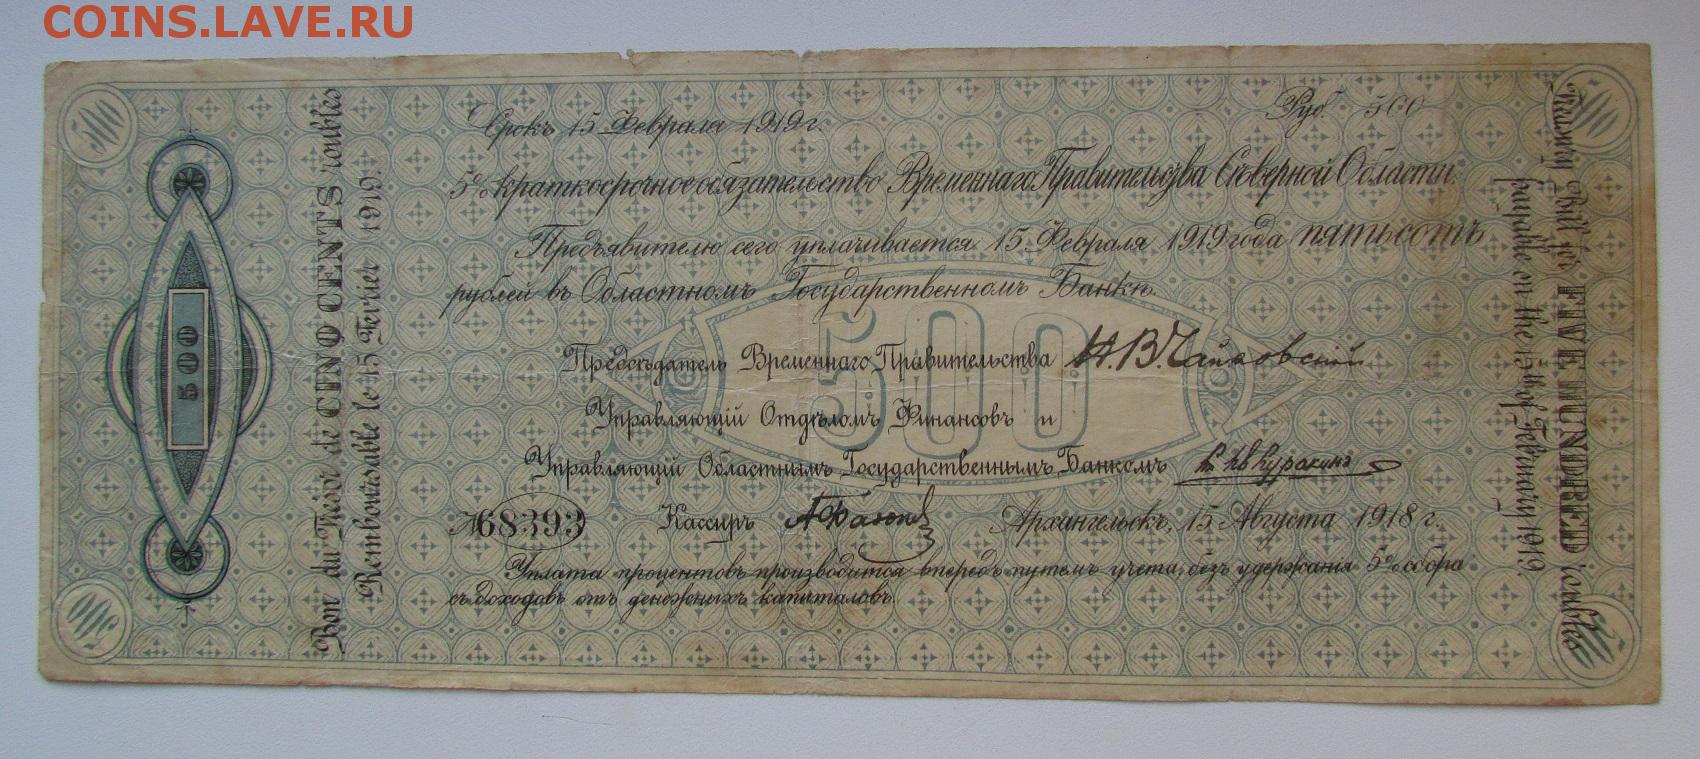 COINS.LAVE.RU
Срокъ 15 Февраля 1919 г.
Руб. 500
5% краткосрочное обязательство Временнаго Правительства Сѣверной Области.
Предъявителю сего уплачивается 15 Февраля 1919 года пятьсотъ
рублей въ Областномъ Государственномъ Банкѣ.
500
Предсѣдатель Временнаго Правительства Н.В. Чайковскій
Управляющій Отдѣломъ Финансовъ и
Управляющій Областнымъ Государственнымъ Банкомъ Куракинъ
№ 68393 Кассиръ
Архангельскъ, 15 Августа 1918 г.
Уплата процентовъ производится впередъ путемъ учета, безъ удержанія 5% сбора
съ доходовъ отъ денежныхъ капиталовъ.
500
Bon du Trésor de CINQ CENTS roubles
Remboursable le 15 Fevrier 1919.
Treasury Bill for FIVE HUNDRED roubles
payable on the 15th of February 1919.